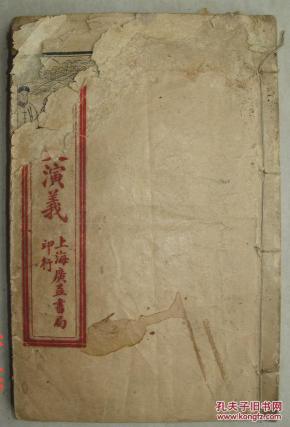 演義
上海廣益書局
印行
孔夫子旧书网